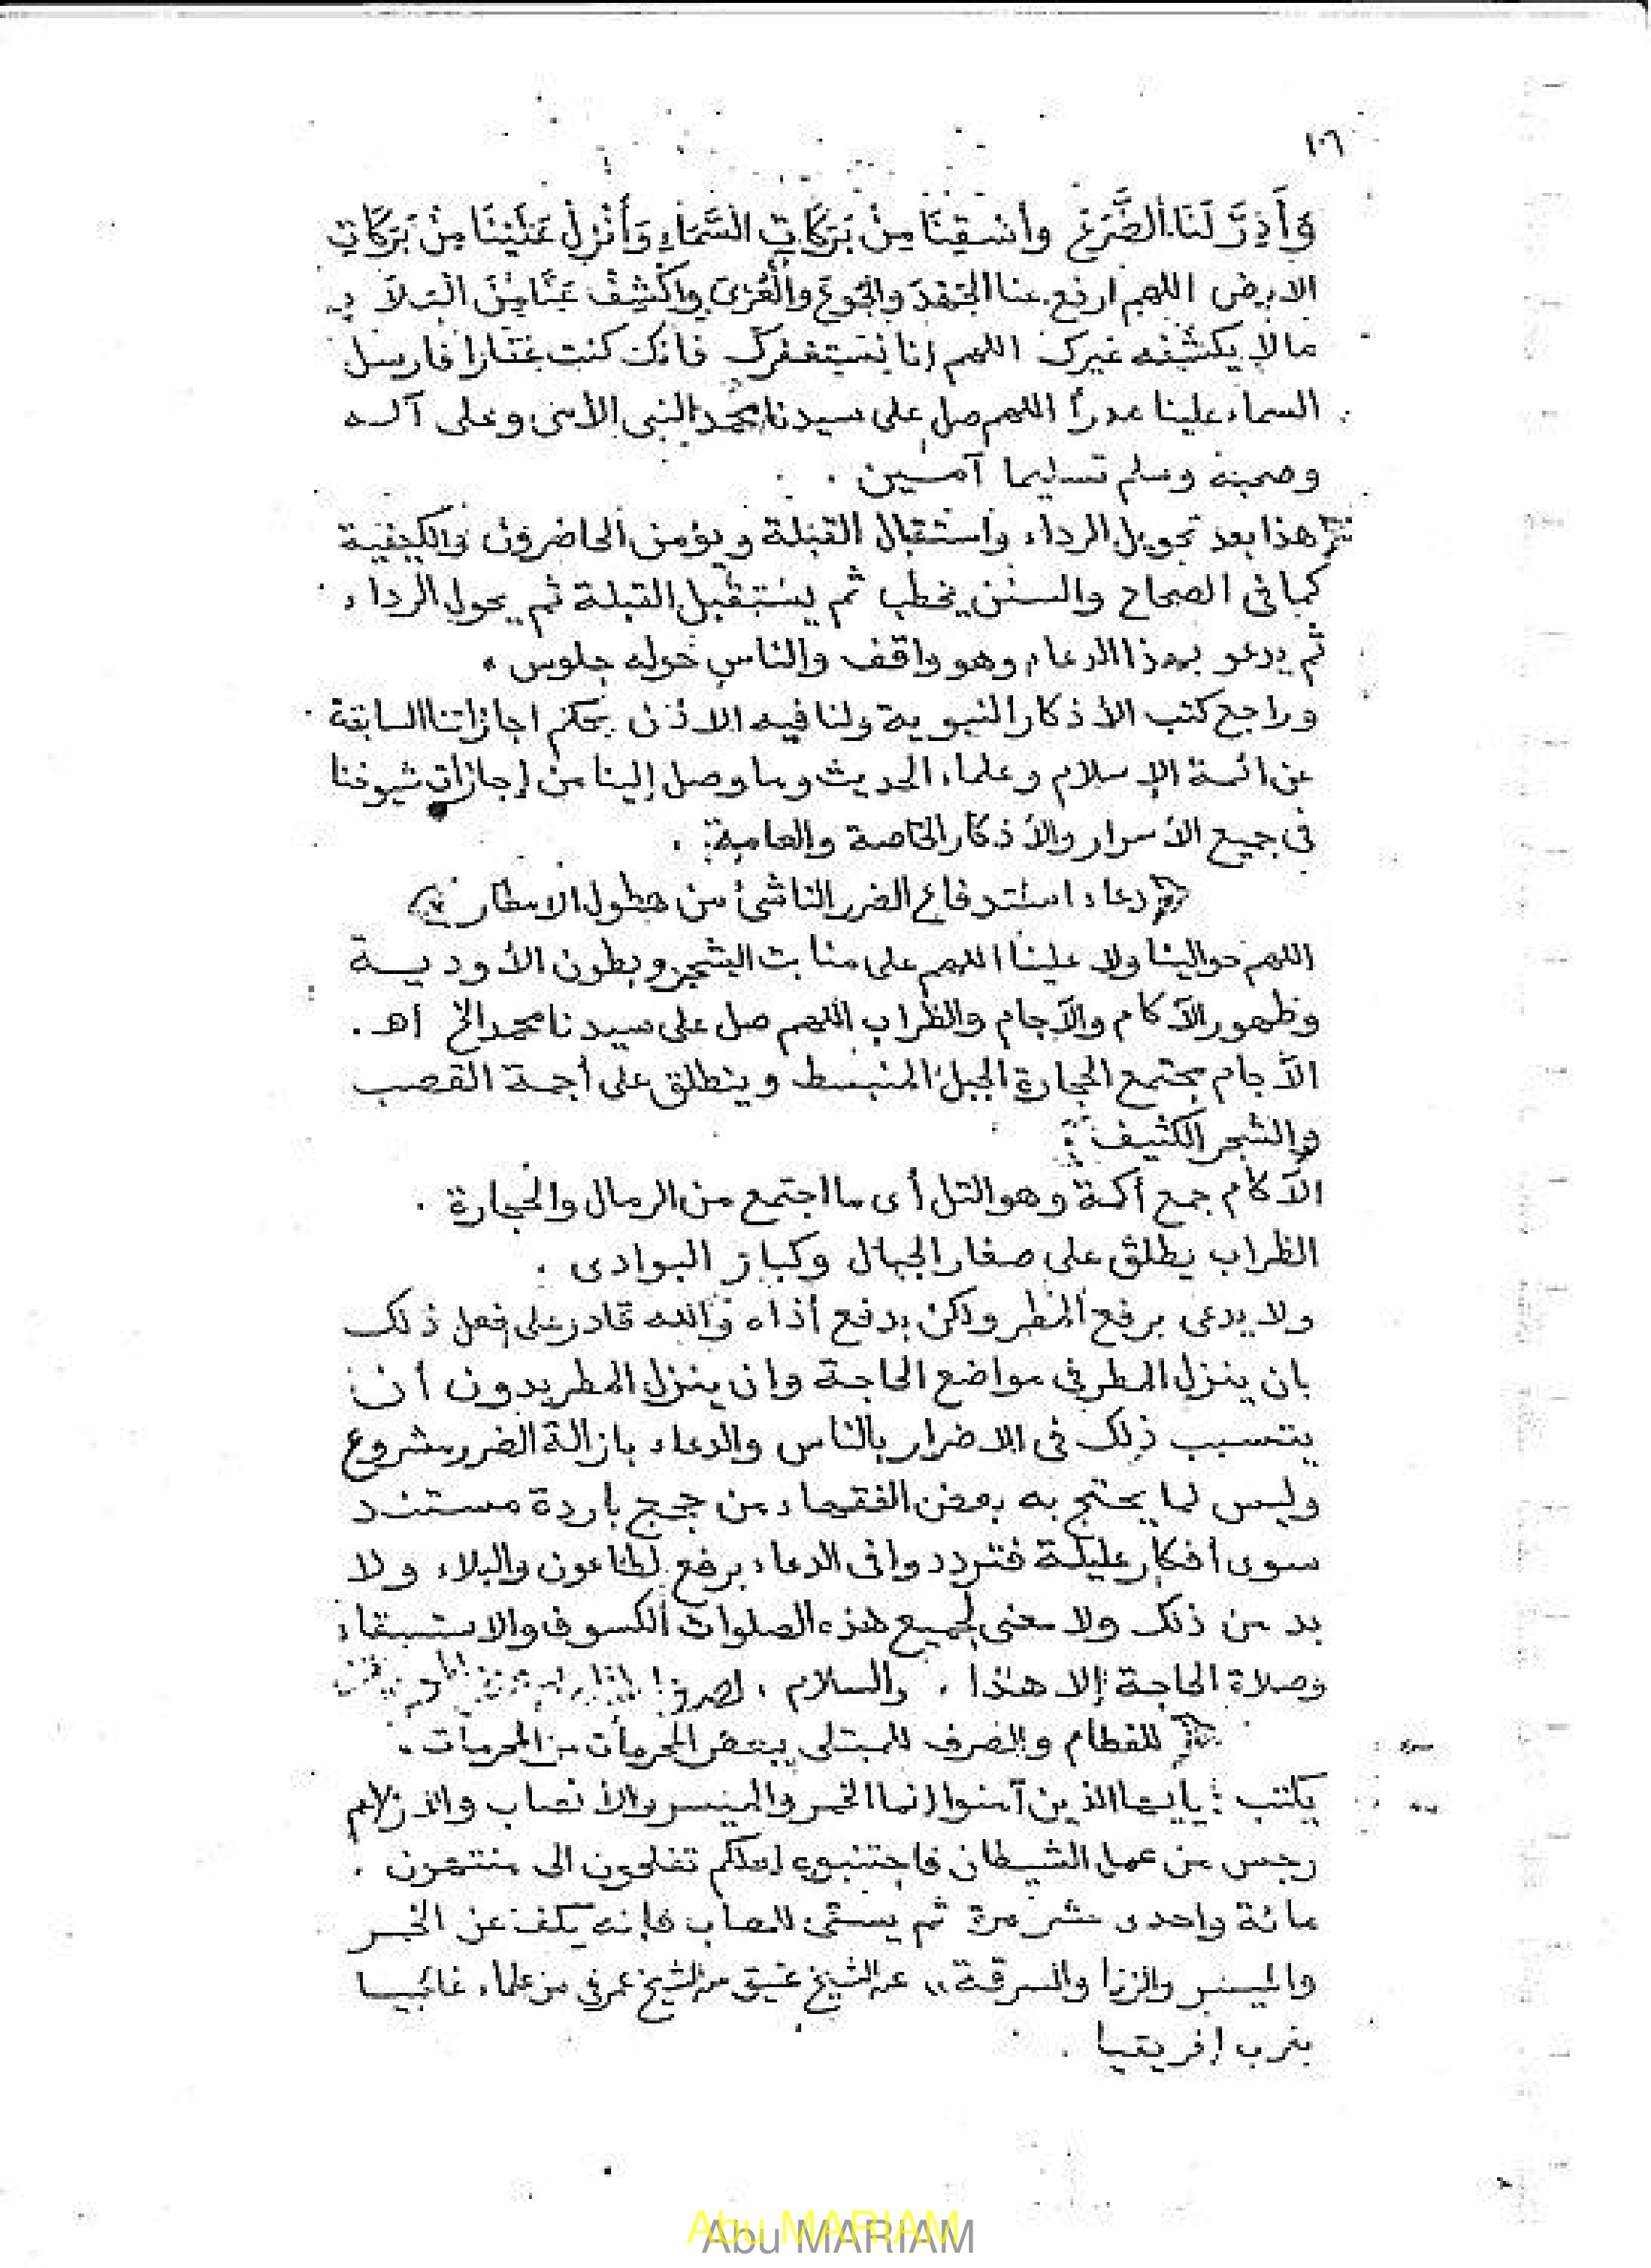 ١٠٦
وَأَدِرَّ لَنَا الضَّرْعَ وأسْقِنَا مِنْ بَرَكَاتِ السَّمَاءِ وَأَنْزِلْ عَلَيْنَا مِنْ بَرَكَاتِ
الارض اللهم ارفع عنا الجَهْدَ والجُوعَ والْعُرْىَ واكْشِفْ عَنَّا مِنَ الْبَلاَءِ
مالا يكشفه غيرك اللهم إنا نستغفرك فانك كنت غفارا فارسل
السماء علينا مدراً اللهم صل على سيدنا محمد النبى الأمى وعلى آله
وصحبه وسلم تسليما آمين .
هذا بعد تحويل الرداء واستقبال القبلة ويؤمن الحاضرون والكيفية
كما فى الصحاح والسنن يخطب ثم يستقبل القبلة ثم يحول الرداء
ثم يدعو بهذا الدعاء وهو واقف والناس حوله جلوس .
وراجع كتب الأذكار النبوية ولنا فيه الاذن بحكم اجازاتنا السابقة
عن ائمة الإسلام وعلماء الحديث وما وصل إلينا من إجازات شيوخنا
فى جميع الأسرار والأذكار الخاصة والعامة .
دعاء استدفاع الضرر الناشئ من هطول الامطار
اللهم حوالينا ولا علينا اللهم على منابت الشجر وبطون الأودية
وظهور الآكام والآجام والظراب اللهم صل على سيدنا محمد الخ أهـ .
الآجام مجتمع الحجارة الجبل المنبسط وينطلق على أجمة القصب
والشجر الكثيف .
الآكام جمع أكمة وهو التل أى ما اجتمع من الرمال والحجارة .
الظراب يطلق على صغار الجبال وكبار البوادى .
ولا يدعى برفع المطر ولكن بدفع أذاه والله قادر على فعل ذلك
بان ينزل المطر فى مواضع الحاجة وان ينزل المطر بدون أن
يتسبب ذلك فى الاضرار بالناس والدعاء بازالة الضرر مشروع
وليس لما يحتج به بعض الفقهاء من حجج باردة مستند
سوى أفكار عليلة فترددوا فى الدعاء برفع الطاعون والبلاء ولا
بد من ذلك ولا معنى لجميع هذه الصلوات الكسوف والاستسقاء
وصلاة الحاجة إلا هذا . والسلام .
للفطام والصرف للمبتلى ببعض المحرمات من المحرمات .
يكتب : يايها الذين آمنوا إنما الخمر والميسر والأنصاب والازلام
رجس من عمل الشيطان فاجتنبوه لعلكم تفلحون الى منتهون .
مائة واحدى عشر مرة ثم يسقى للمصاب فإنه يكف عن الخمر
والميسر والزنا والسرقة ،، عن الشيخ عن الشيخ من علماء
بغرب إفريقيا .
Abu MARIAM